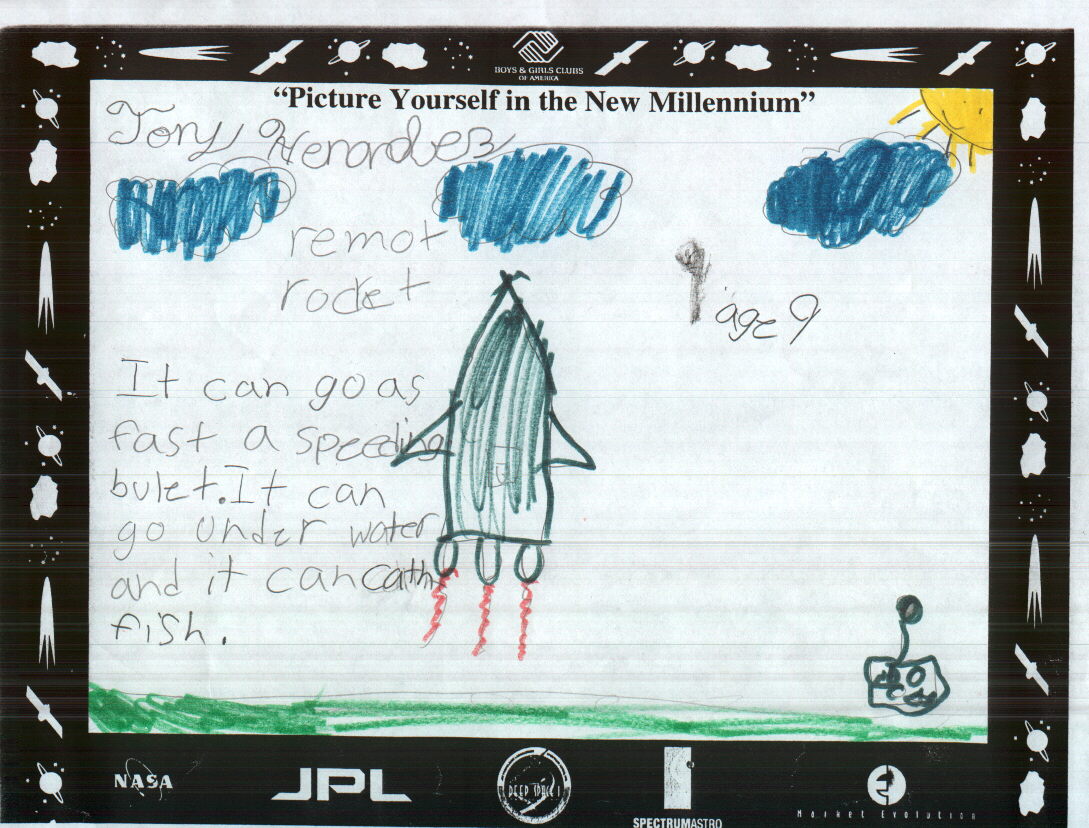 BOYS & GIRLS CLUBS
OF AMERICA
"Picture Yourself in the New Millennium"
Tony Henardez
remot
rocket
age 9
It can go as
fast a speeding
bulet. It can
go under water
and it can cath
fish.
NASA
JPL
DEEP SPACE 1
SPECTRUMASTRO
Market Evolution